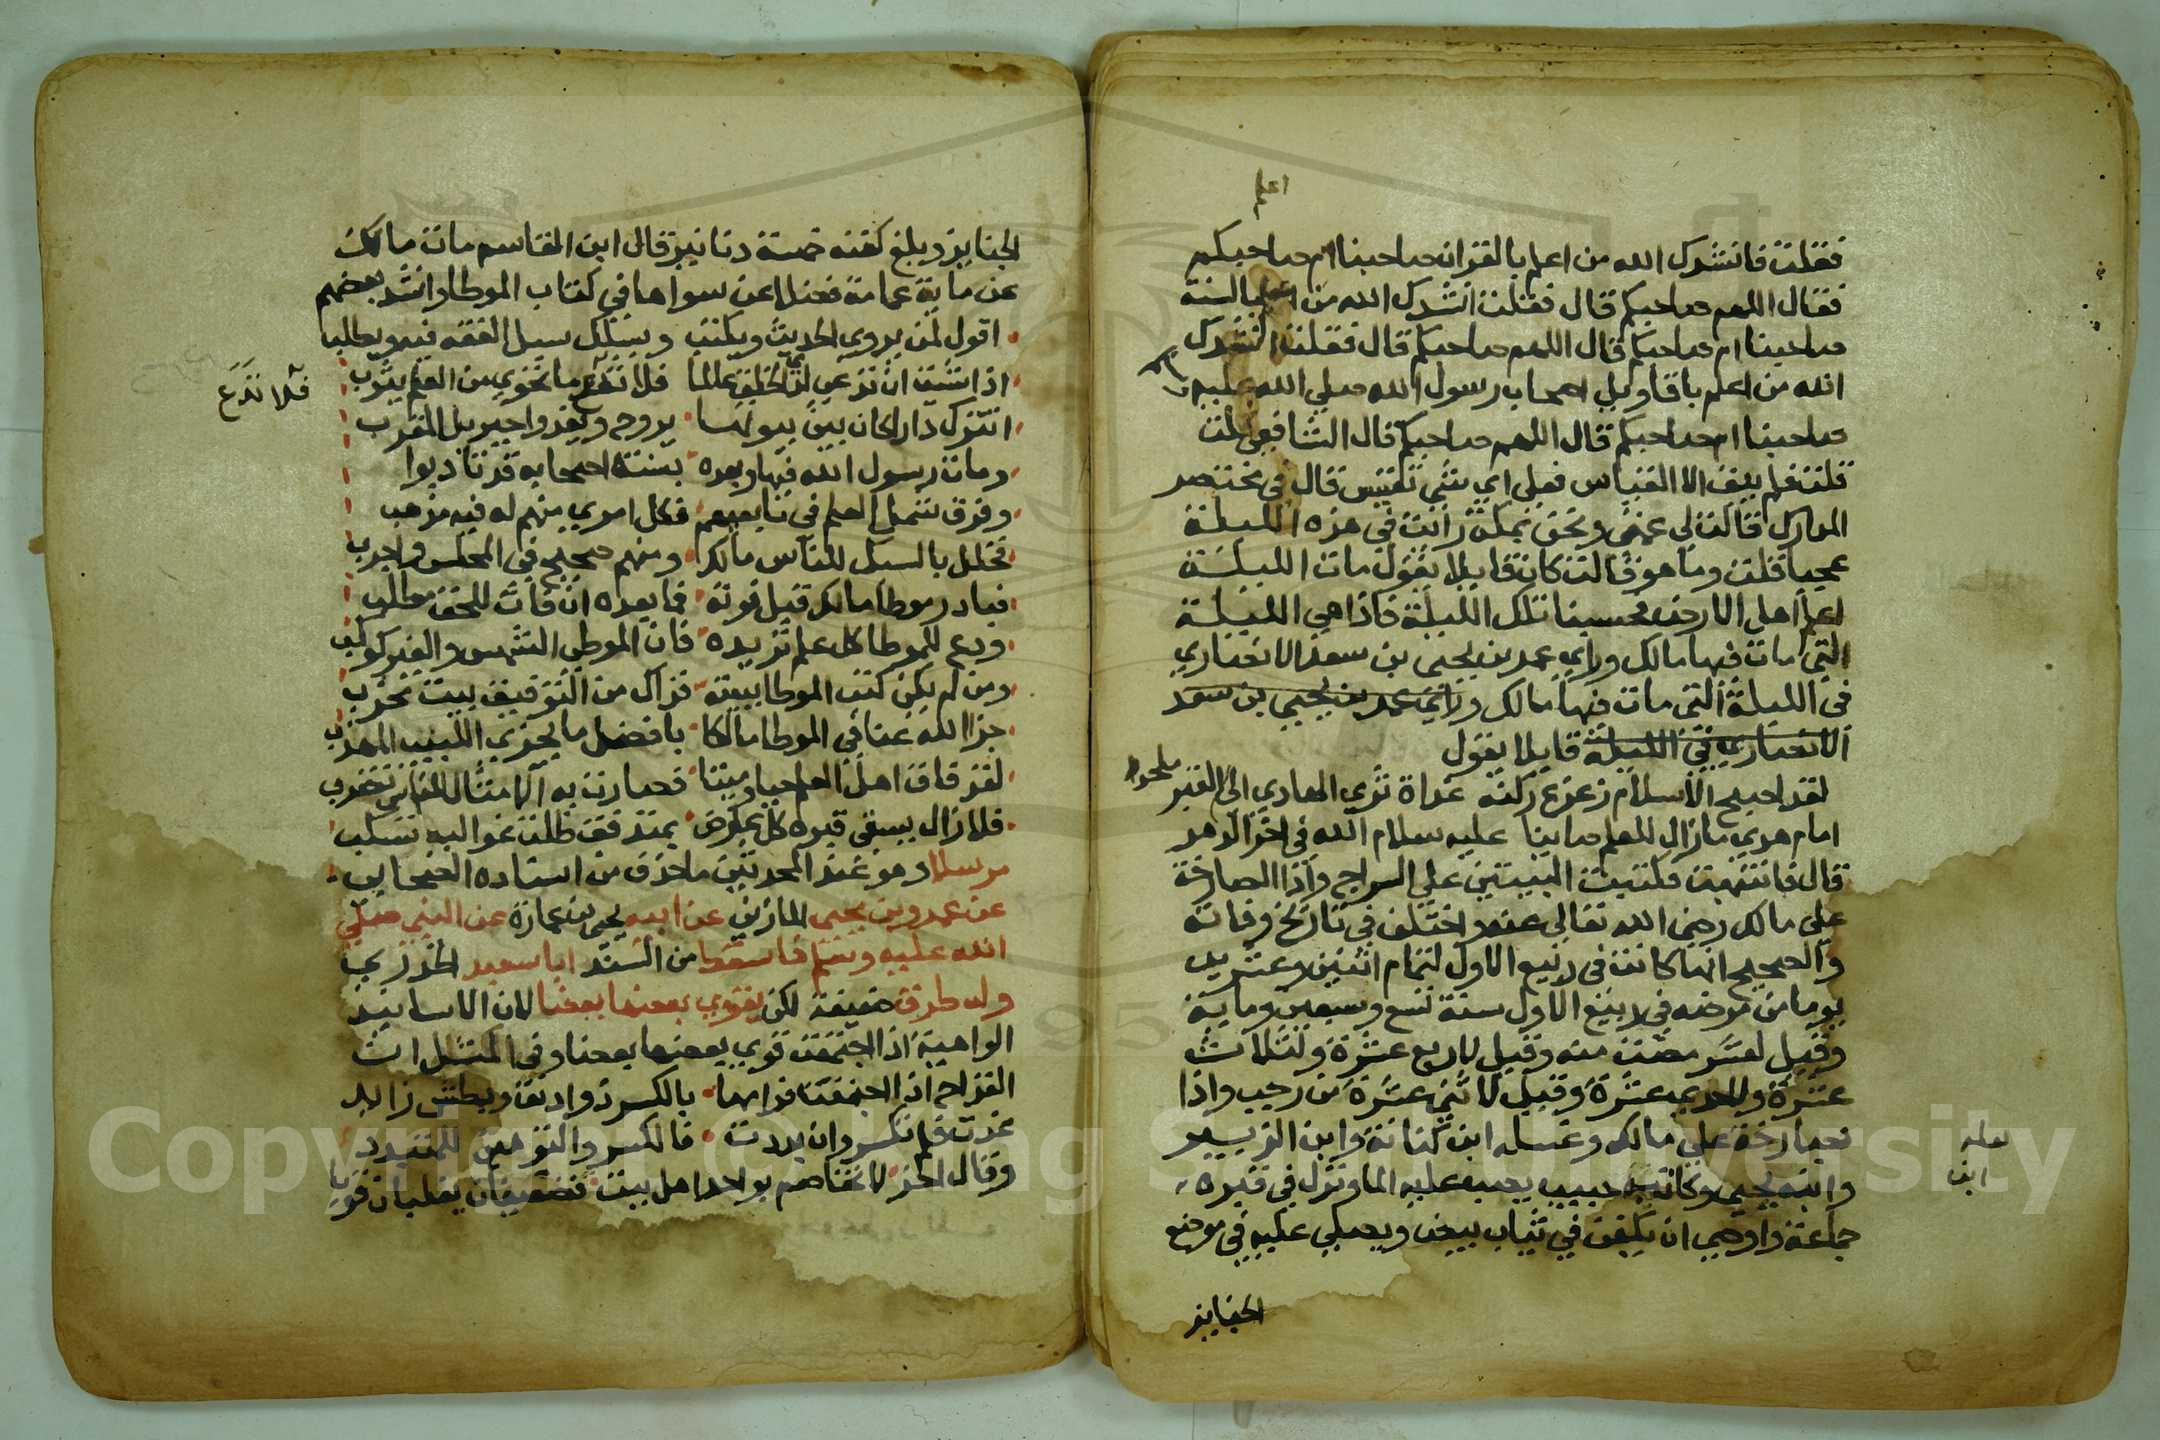 اعلم
فقلت فانشدك الله من اعلم بالقران صاحبنا ام صاحبكم
فقال اللهم صاحبكم قال فقلت انشدك الله من اعلم بالسنة
صاحبنا ام صاحبكم قال اللهم صاحبكم قال فقلت انشدك
الله من اعلم باقاويل اصحاب رسول الله صلي الله عليه
صاحبنا ام صاحبكم قال اللهم صاحبكم قال الشافعي
قلت فلم يبق الا القياس فعلي اي شي تقيس قال في مختصر
المدارك قالت لي عمتي ونحن بمكة رايت في هذه الليلة
عجبا قلت وما هو قالت كان قايلا يقول مات الليلة
اعلم اهل الارض فحسبنا تلك الليلة فاذا هي الليلة
التي مات فيها مالك وراي عمر بن يحيي بن سعد الانصاري
في الليلة التي مات فيها مالك وراي عمر بن يحيي بن سعد
الانصاري في الليلة قايلا يقول
لقد اصبح الاسلام زعزع ركنه غداة ثوي الهادي الي القبر
ملحود
امام هدي مازال للعلم صاينا عليه سلام الله في اخر الدهر
قال فانتبهت فكتبت البيتين علي السراج واذا الصارخة
علي مالك رضي الله تعالي عنه واختلف في تاريخ وفاته
والصحيح انها كانت في ربيع الاول لتمام اثنين وعشرين
يوما من مرضه في ربيع الاول سنة تسع وسبعين وماية
وقيل لعشر مضت منه وقيل لاربع عشرة ولثلاث
عشرة ولاحدي عشرة وقيل لاثني عشرة من رجب واذا
بصارخة علي مالك وغسله ابن كنانة وابن الزبير
لعله
ابن
وابنه يحيي وكاتبه حبيب يصب عليه الما ونزل في قبره
جماعة واوصي ان يكفن في ثياب بيض ويصلي عليه في موضع
الجنايز
الجنايز وبلغ كفنه خمسة دنانير قال ابن القاسم مات مالك
عن ماية عمامة فضلا عن سواها في كتاب الموطا وانشد بعضهم
اقول لمن يروي الحديث ويكتب ويسلك سبل الفقه فيه ويطلب
اذا شئت ان تدعي لدي الخلق عالما فلا تدع ما تحوي من العلم يثرب
فلا تدع
اتترك دارا كان بين بيوتها يروح ويغدوا جبريل المقرب
ومات رسول الله فيها وبعده بسنته اصحابه قد تادبوا
وفرق شمل العلم في تابعيهم فكل امري منهم له فيه مذهب
فخلل بالسبك للناس مالك ومنهم صحيح في المجس واجرب
فبادر موطا مالك قبل فوته فما بعده ان فات للحق مطلب
ودع للموطا كل علم تريده فان الموطي الشمس والغير كوكب
ومن لم يكن كتب الموطا ببيته فذاك من التوفيق بيت مخرب
جزا الله عنا في الموطا مالكا بافضل ما يجزي اللبيب المهذب
لقد فاق اهل العلم حيا وميتا فصارت به الامثال للناس تضرب
فلا زال يسقي قبره كل عارض بمندفق ظلت غواليه تسكب
مرسلا وهو عند المحدثين ما حذف من اسناده الصحابي
عن عمرو بن يحيي المازني عن ابيه يحيي بن عمارة عن النبي صلي
الله عليه وسلم فاسقط من السند ابا سعيد الخدري
وله طرق ضعيفة لكن يقوي بعضها بعضا لان الاسانيد
الواهية اذا اجتمعت قوي بعضها بعضا وفي المثل ان
القداح اذا اجتمعت فرامها بالكسر ذو احنق وبطش زايد
عزت فلم تكسر وان بددت فالكسر والتوهين للمتبدد
وقال اخر لا تخاصم بواحد اهل بيت فضعيفان يغلبان قويا